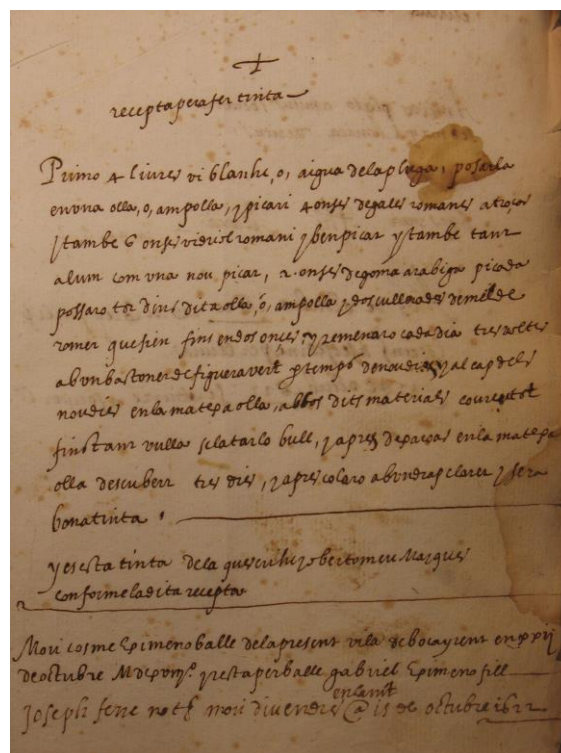 recepta pera fer tinta
Primo 4 liures vi blanhc, o, aigua dela pluga, posarla
en vna olla, o, ampolla, y picari 4 onses de gales romanes a troços
y tambe 6 onses vidriol romani y ben picar y tambe tant
alum com vna nou picar, 2 onses de goma arabiga picada
possaro tot dins dita olla, o, ampolla y dos cullerades de mel de
romer que sien fins en dos onçes, y remenaro cada dia tres voltes
ab vn bastonet de figuera vert per temps de nou dies y al cap dels
nou dies en la matexa olla, ab los dits materials
fins tant vulla bull, y apres en la matexa
olla descubert tres dies, y apres colaro ab vn drap claret y sera
bona tinta
y es esta tinta dela que scrihc yo bertomeu Marques
conforme la dita recepta
Mori cosme balle dela present vila de bocayrent en
de octubre y resta per balle gabriel fill
Joseph not mori divendres en la nit a 15 de octubre 1622